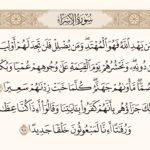 سورة الإسراء
من يهد الله فهو المهتد ومن يضلل فلن تجد لهم أولياء
من دونه ونحشرهم يوم القيامة على وجوههم عميا وبكما
وصما مأواهم جهنم كلما خبت زدناهم سعيرا
ذلك جزاؤهم بأنهم كفروا بآياتنا وقالوا أءذا كنا عظاما
ورفاتا أءنا لمبعوثون خلقا جديدا